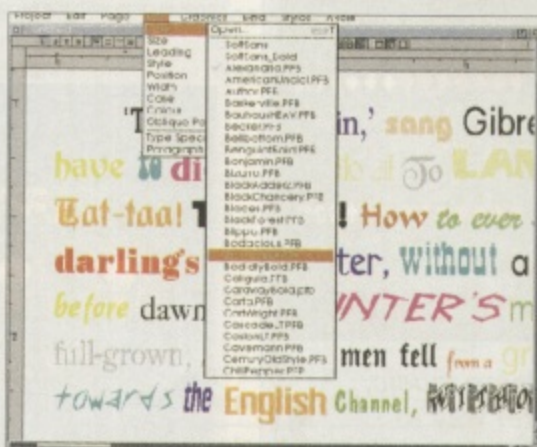 Project Edit Page Graphics Text Styles
Open...
Size
Leading
Style
Position
Width
Case
Colour
Oblique
Type Spec
Paragraph
SoftSans
SoftSans_Bold
Alexandria.PFB
AmericanUncial.PFB
Author.PFB
Baskerville.PFB
BauhausHEAV.PFB
Becker.PFB
Bellbottom.PFB
Benjamin.PFB
Bizarro.PFB
BlackAdder2.PFB
BlackChancery.PFB
Blocex.PFB
BlackForest.PFB
Blippo.PFB
Bodacious.PFB
BodidlyBold.PFB
Caligula.PFB
CarawayBold.pfb
Carta.PFB
CartWright.PFB
Cascade_T.PFB
Cavemann.PFB
CenturyOldStyle.PFB
ChiliPepper.PFB
in,' sang Gibre
have to di To LAN
Tat-taa! ! How to ever
darlings ter, without a
before dawn NTER'S m
full-grown, men fell from a gr
towards the English Channel,